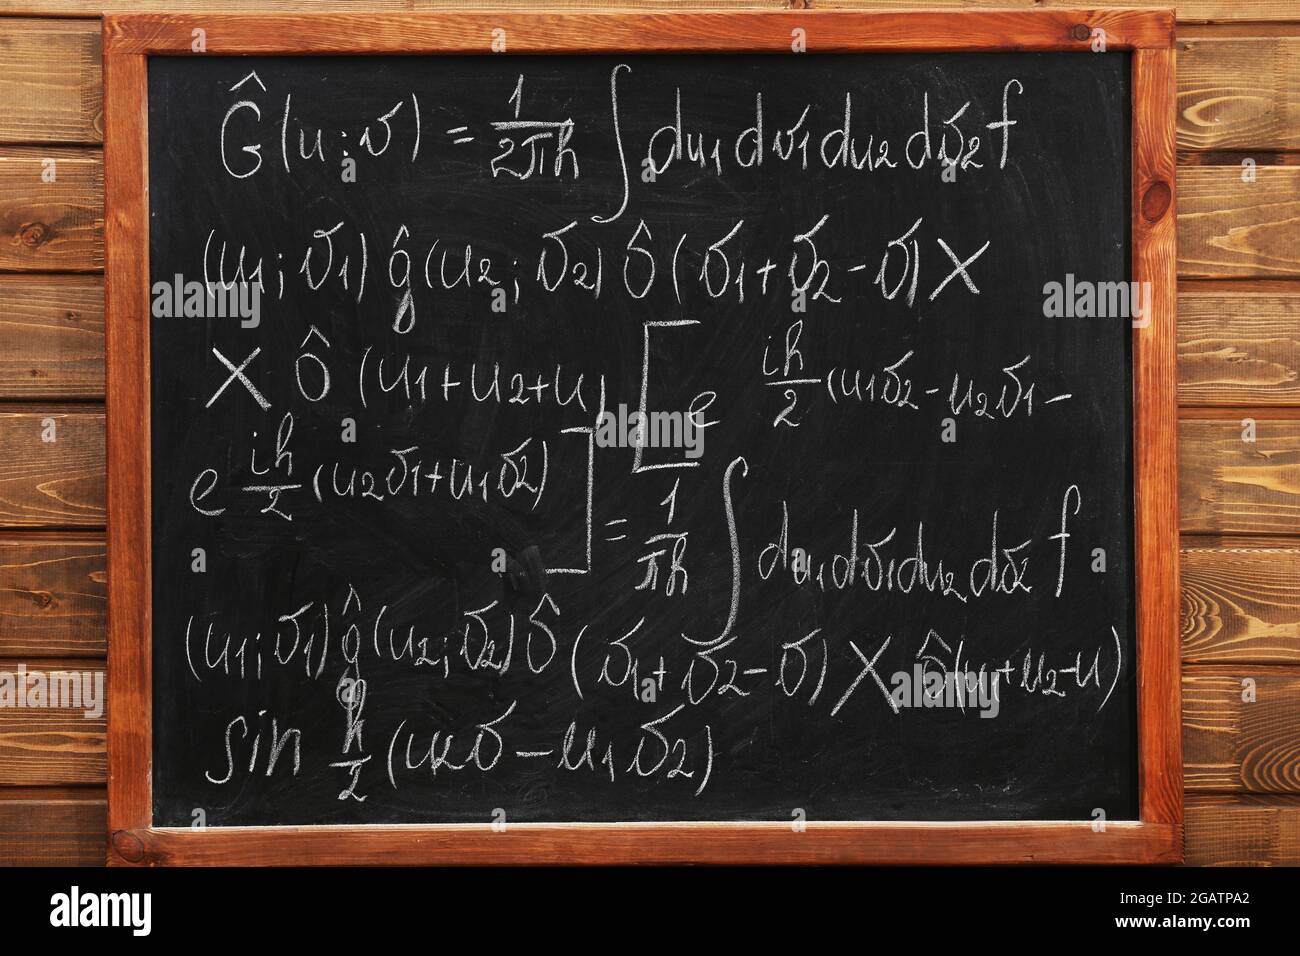 Ĝ(u;v) = 1/2πħ ∫ du1dv1du2dv2 f
(u1;v1) ĝ(u2;v2) δ̂(v1+v2-v) ×
× δ̂ (u1+u2+u) [e iħ/2 (u1v2-u2v1-
e iħ/2 (u2v1+u1v2)] = 1/πħ ∫ du1dv1du2dv2 f
(u1;v1) ĝ(u2;v2) δ̂ (v1+v2-v) × δ̂(u1+u2-u)
sin ħ/2 (u2v-u1v2)
alamy
Image ID: 2GATPA2
www.alamy.com